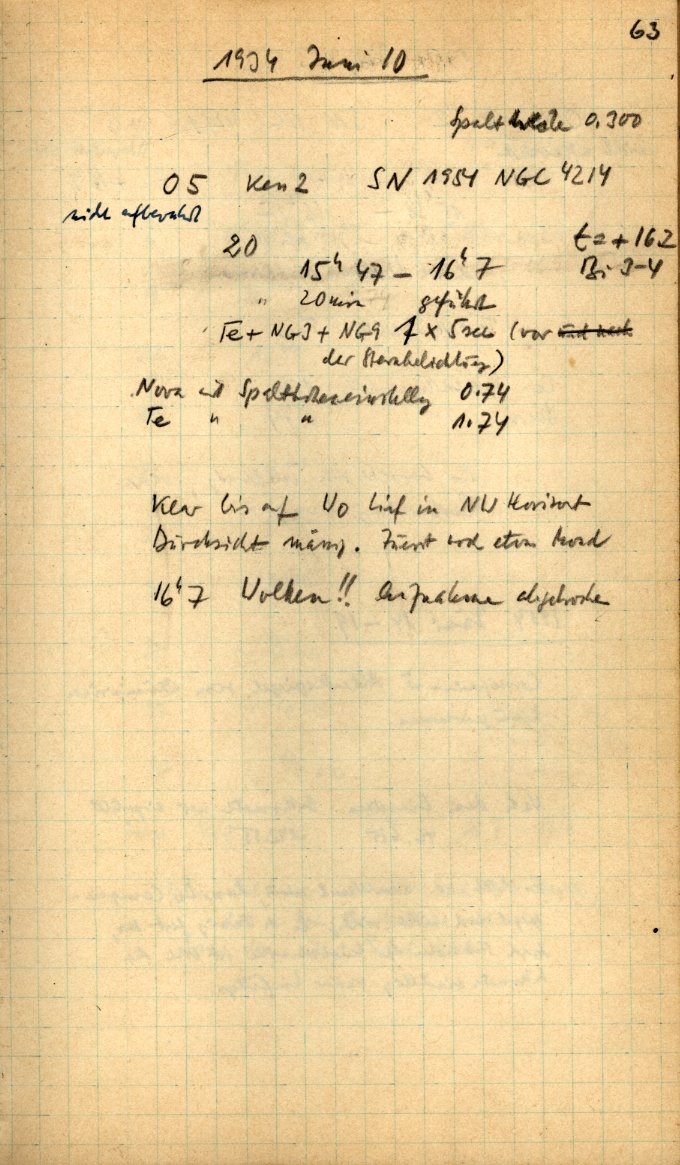 63
1954 Juni 10
Spaltbreite 0.300
05 Ken 2 SN 1954 NGC 4214
nicht aufbewahrt
20 t = + 16.2
15ʰ 47 – 16ʰ 7 Bi 3-4
" 20 min geführt
Te + NG3 + NG9 1 x 5 sec (vor und nach
der Sternbelichtung)
Nova mit Spalthöheneinstellg 0.74
Te " " 1.74
Klar bis auf Wo tief in NW Horizont
Durchsicht mässig. Zuerst noch etwas Mond
16ʰ 7 Wolken!! Aufnahme abgebrochen